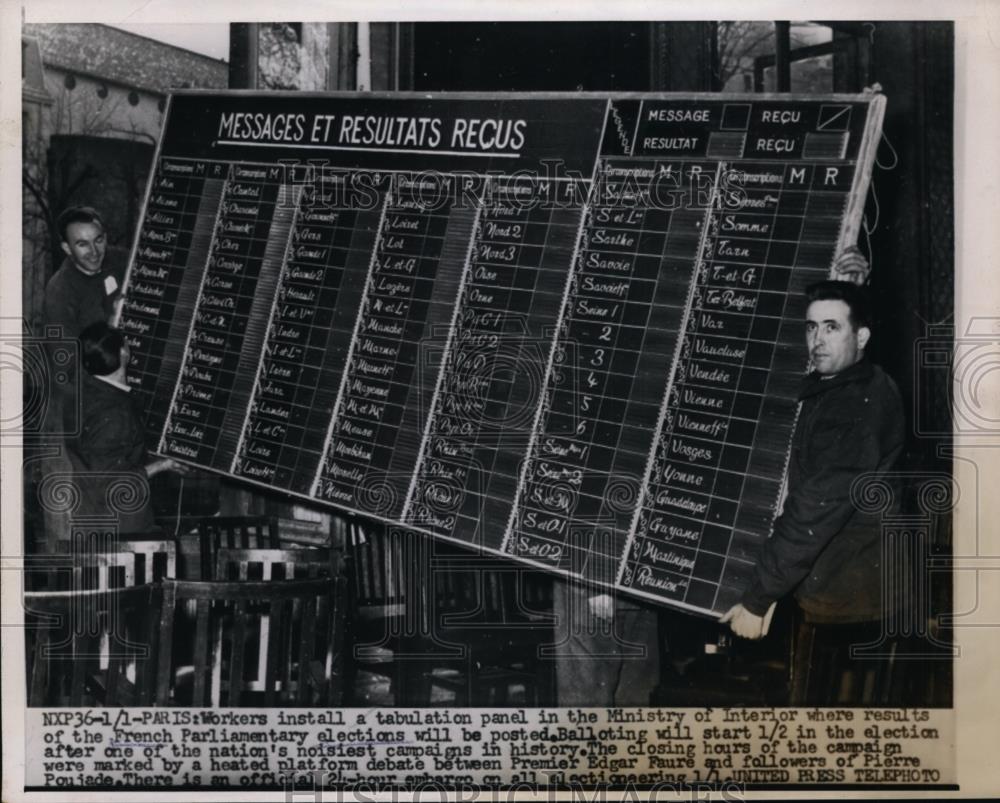 MESSAGES ET RESULTATS REÇUS
LEGENDE
MESSAGE REÇU
RESULTAT REÇU
Circonscriptions M R
Ain
Aisne
Allier
Ardèche
Ardennes
Ariège
Circonscriptions M R
Cantal
Charente
Cher
Corrèze
Corse
Creuse
Dordogne
Doubs
Drome
Eure
Finistère
Circonscriptions M R
Gard
Gers
Gironde 1
Gironde 2
Herault
I et V
Indre
I et L
Isère
Jura
Landes
L et C
Loire
Circonscriptions M R
Loiret
Lot
L et G
Lozère
M et L
Manche
Marne
Mayenne
M et M
Meuse
Morbihan
Moselle
Nièvre
Circonscriptions M R
Nord 1
Nord 2
Nord 3
Oise
Orne
P de C 1
P de C 2
Rhône 1
Rhône 2
Circonscriptions M R
S et L
Sarthe
Savoie
Seine 1
- 2
- 3
- 4
- 5
- 6
S et M
S et O 1
S et O 2
Circonscriptions M R
Somme
Tarn
T-et-G
Ter Belfort
Var
Vaucluse
Vendée
Vienne
Vosges
Yonne
Guadeloupe
Guyane
Martinique
Réunion
HISTORIC IMAGES
NXP36-1/1-PARIS:Workers install a tabulation panel in the Ministry of Interior where results
of the French Parliamentary elections will be posted.Balloting will start 1/2 in the election
after one of the nation's noisiest campaigns in history.The closing hours of the campaign
were marked by a heated platform debate between Premier Edgar Faure and followers of Pierre
Poujade.There is an official 24-hour embargo on all electioneering 1/1.UNITED PRESS TELEPHOTO
HISTORIC IMAGES